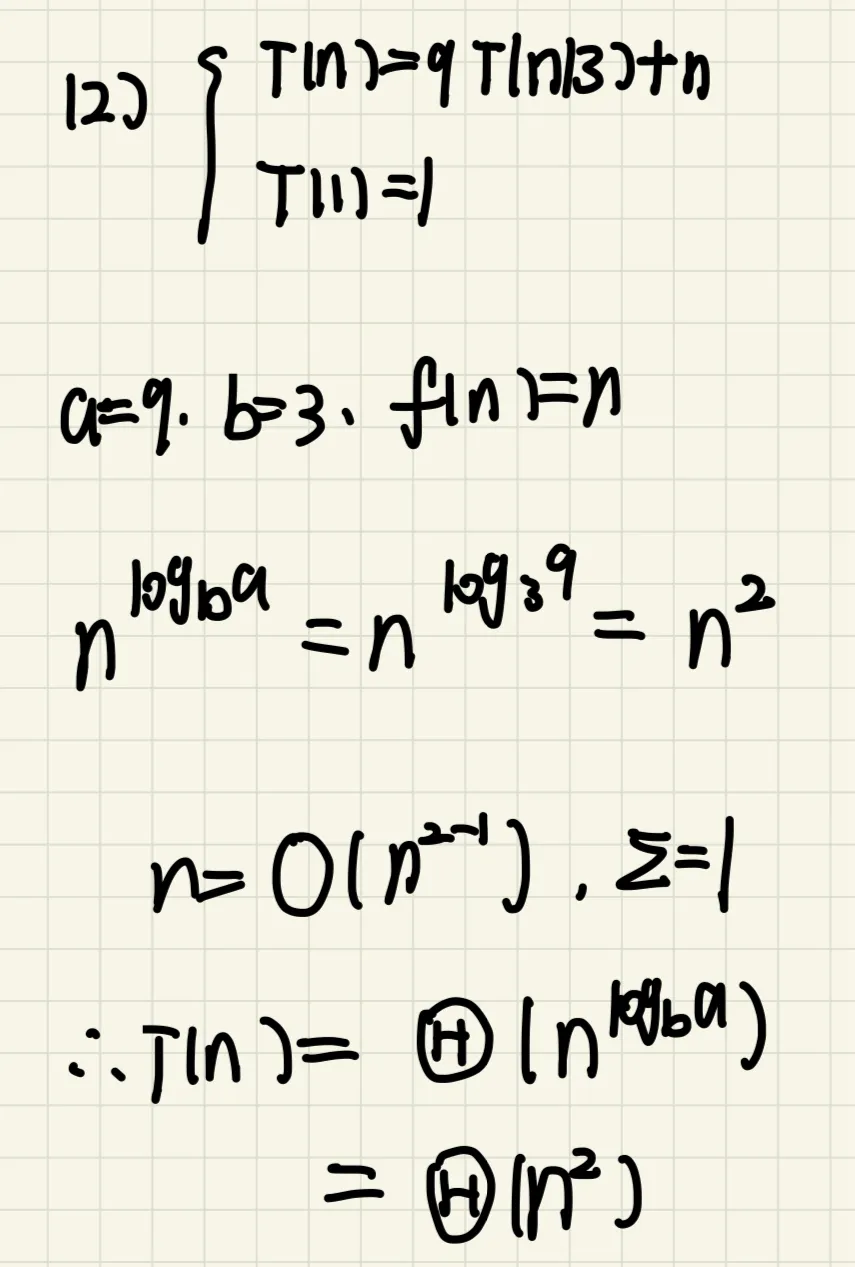 (2) { T(n)=9T(n/3)+n
T(1)=1
a=9. b=3、f(n)=n
n^{log_b a} = n^{log_3 9} = n^2
n=O(n^{2-1}), Σ=1
∴T(n)=Θ(n^{log_b a})
=Θ(n^2)